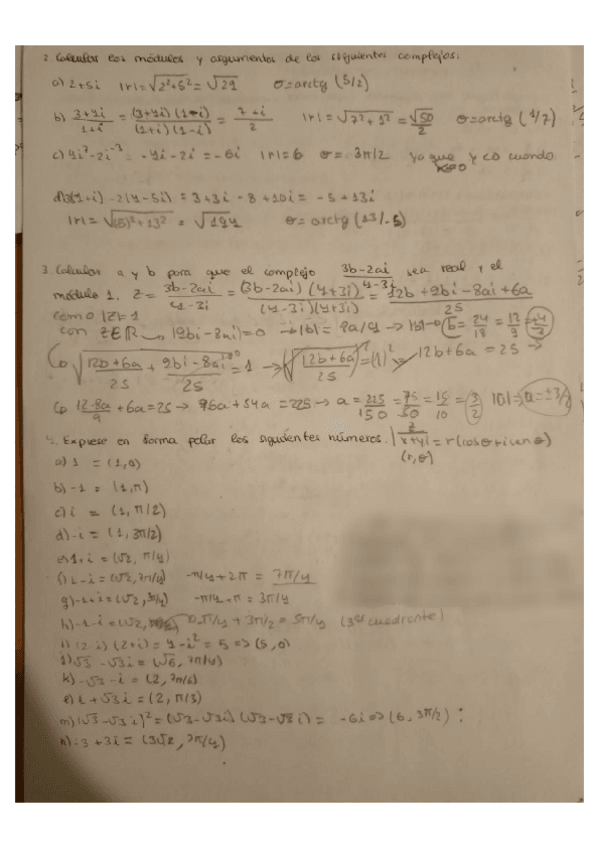 2. Calcular los módulos y argumentos de los siguientes complejos:
a) 2+5i |r|=√2²+5² = √29 σ=arctg (5/2)
b) 3+4i/1+i = (3+4i)(1-i)/(1+i)(1-i) = 7+i/2 |r|=√7²+1² = √50/2 σ=arctg (1/7)
c) 4i⁷-2i⁻³ = -4i-2i = -6i |r|=6 σ= 3π/2 ya que y<0 cuando
x=0
d) 3(1+i) -2(4-5i) = 3+3i-8+10i = -5+13i
|r|=√(5)²+13² = √194 σ=arctg (13/-5)
3. Calcular a y b para que el complejo 3b-2ai/4-3i sea real y el
módulo 1. Z= 3b-2ai/4-3i = (3b-2ai)(4+3i)/(4-3i)(4+3i) = 12b+9bi-8ai+6a/25
como |Z|=1
con Z∈R → |9bi-8ai|=0 → |b|= 8a/9 → b= 24/18 = 12/9 = 4/3
√12b+6a/25 + 9bi-8ai/25 = 1 → (√12b+6a/25)² = (1)² 12b+6a = 25 →
12·8a/9 + 6a=25 → 96a+54a = 225 → a= 225/150 = 75/50 = 15/10 = 3/2 a=±3/2
4. Exprese en forma polar los siguientes números. z x+yi = r(cosθ+isenθ)
(r,θ)
a) 1 = (1,0)
b) -1 = (1,π)
c) i = (1,π/2)
d) -i = (1,3π/2)
e) 1+i = (√2, π/4)
f) 1-i = (√2, 7π/4) -π/4+2π = 7π/4
g) -1+i = (√2, 3π/4) -π/4+π = 3π/4
h) -1-i = (√2, 5π/4 (3er cuadrante)
i) (2-i) (2+i) = 4-i² = 5 => (5,0)
j) √3 -√3i = (√6, 7π/4)
k) -√3-i = (2, 7π/6)
l) 1+√3i = (2, π/3)
m) (√3-√3i)² = (√3-√3i) (√3-√3i) = -6i => (6, 3π/2)
n) -3+3i = (3√2, 3π/4)